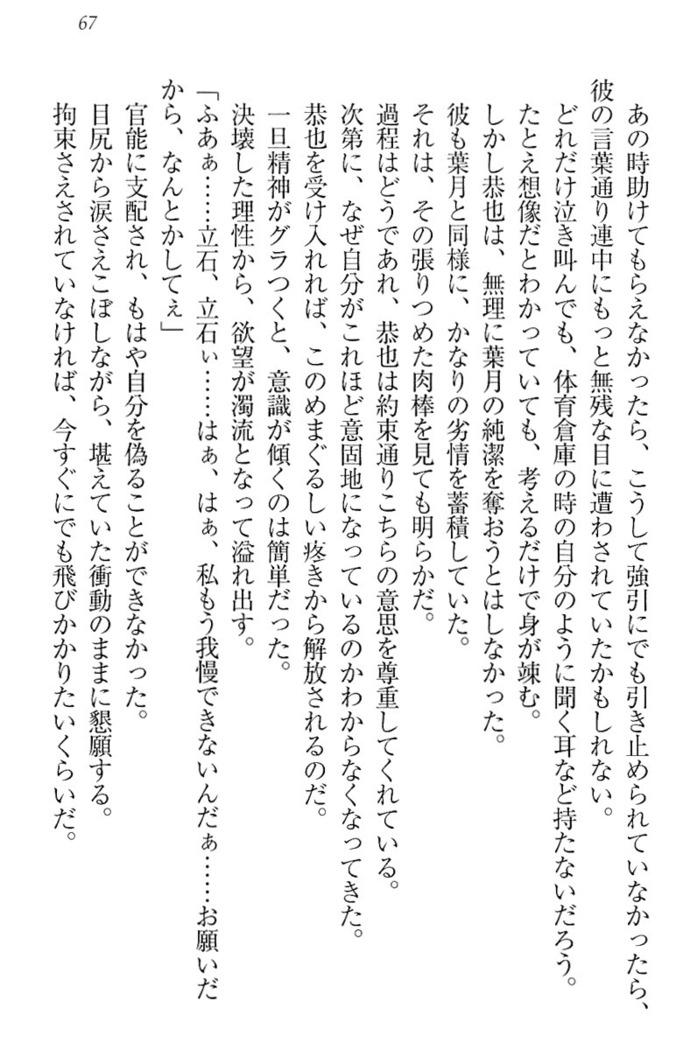 67
あの時助けてもらえなかったら、こうして強引にでも引き止められていなかったら、
彼の言葉通り連中にもっと無残な目に遭わされていたかもしれない。
どれだけ泣き叫んでも、体育倉庫の時の自分のように聞く耳など持たないだろう。
たとえ想像だとわかっていても、考えるだけで身が竦む。
しかし恭也は、無理に葉月の純潔を奪おうとはしなかった。
彼も葉月と同様に、かなりの劣情を蓄積していた。
それは、その張りつめた肉棒を見ても明らかだ。
過程はどうであれ、恭也は約束通りこちらの意思を尊重してくれている。
次第に、なぜ自分がこれほど意固地になっているのかわからなくなってきた。
恭也を受け入れれば、このめまぐるしい疼きから解放されるのだ。
一旦精神がグラつくと、意識が傾くのは簡単だった。
決壊した理性から、欲望が濁流となって溢れ出す。
「ふあぁ……立石、立石ぃ……はぁ、はぁ、私もう我慢できないんだぁ……お願いだ
から、なんとかしてぇ」
官能に支配され、もはや自分を偽ることができなかった。
目尻から涙さえこぼしながら、堪えていた衝動のままに懇願する。
拘束さえされていなければ、今すぐにでも飛びかかりたいくらいだ。